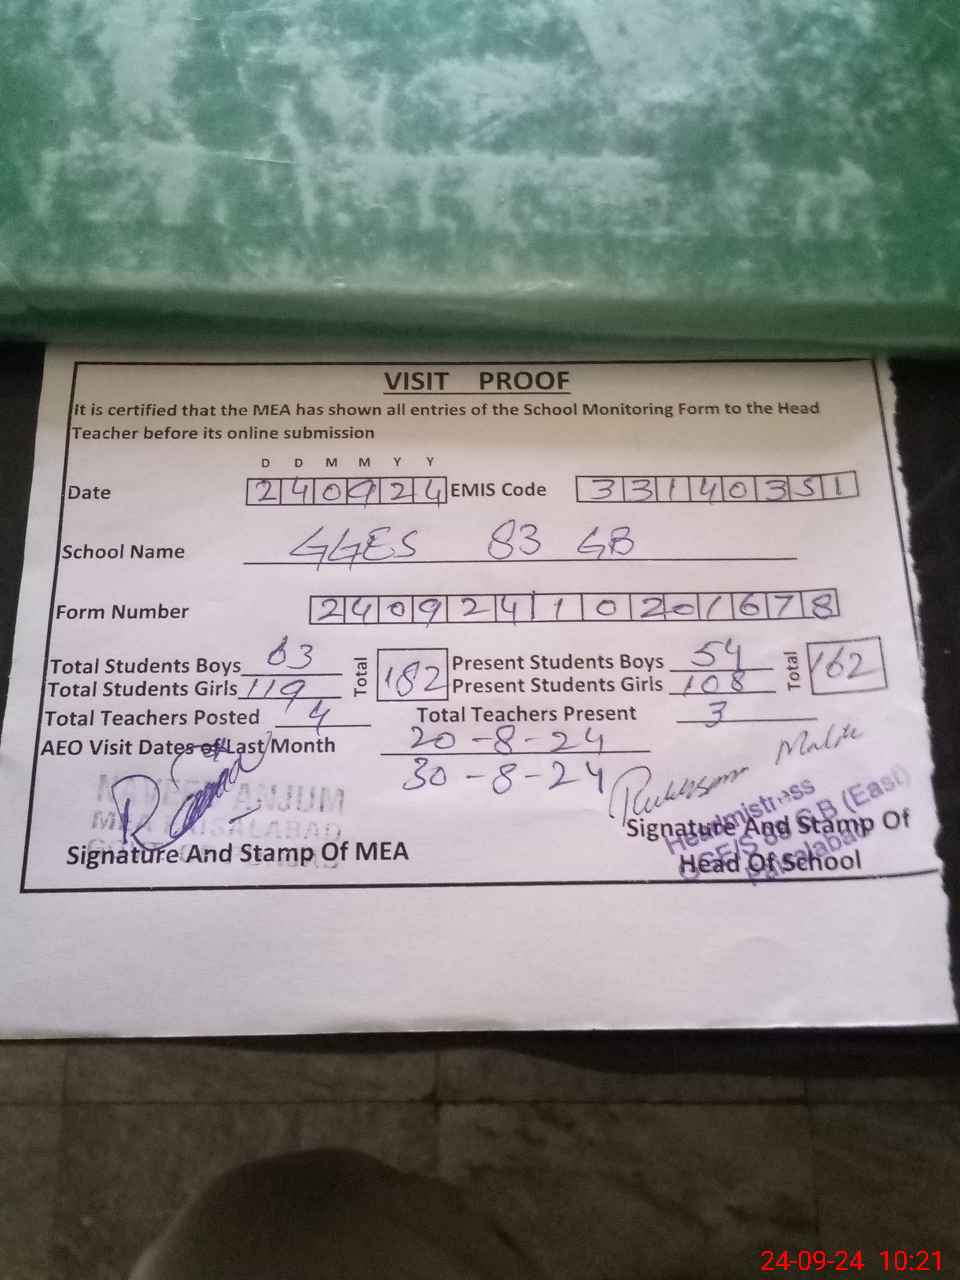 VISIT PROOF
It is certified that the MEA has shown all entries of the School Monitoring Form to the Head
Teacher before its online submission
D D M M Y Y
Date 240924 EMIS Code 33140351
School Name GGES 83 GB
Form Number 240924110201678
Total Students Boys 63 Total 182 Present Students Boys 54 Total 162
Total Students Girls 119 Present Students Girls 108
Total Teachers Posted 4 Total Teachers Present 3
AEO Visit Dates of Last Month 20-8-24
30-8-24
ANJUM
MEA FAISALABAD
Signature And Stamp Of MEA
Headmistress
Signature And Stamp Of
G.B (East)
Head Of School
Faisalabad
24-09-24 10:21